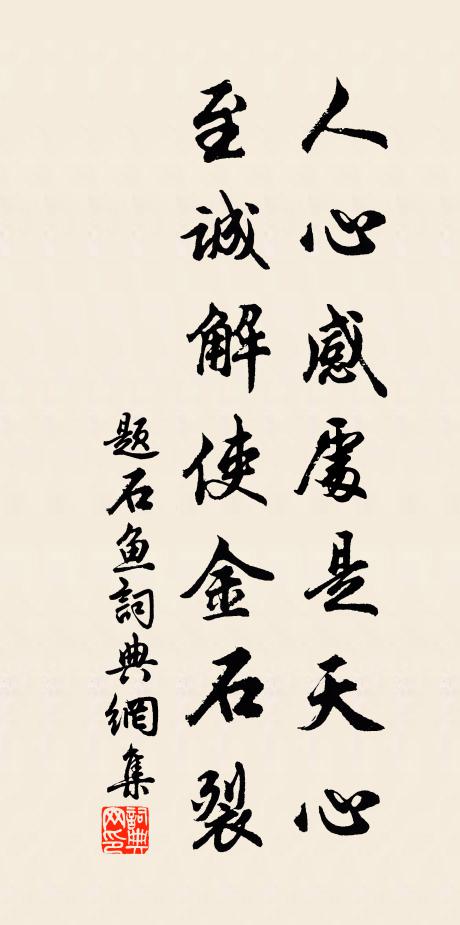 人心感處是天心
至誠解使金石裂
题石鱼詞典網集
詞典网印